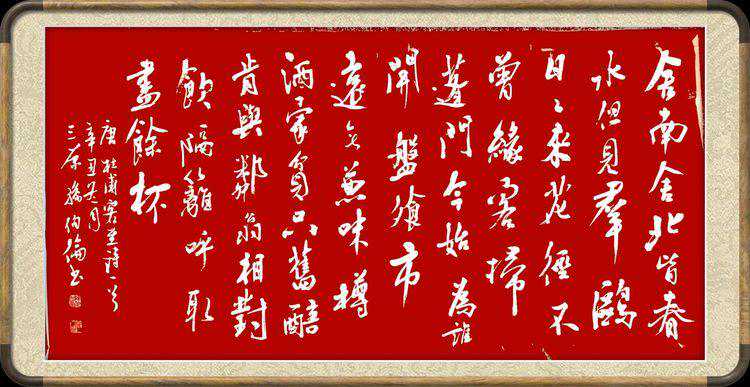 舍南舍北皆春
水但見羣鷗
日〻来花徑不
曾緣客掃
蓬門今始為誰
開盤飧市
遠無兼味樽
酒家貧只舊醅
肯與鄰翁相對
飲隔籬呼取
盡餘杯
唐杜甫客至詩一首
辛丑月
三原孫伯倫書